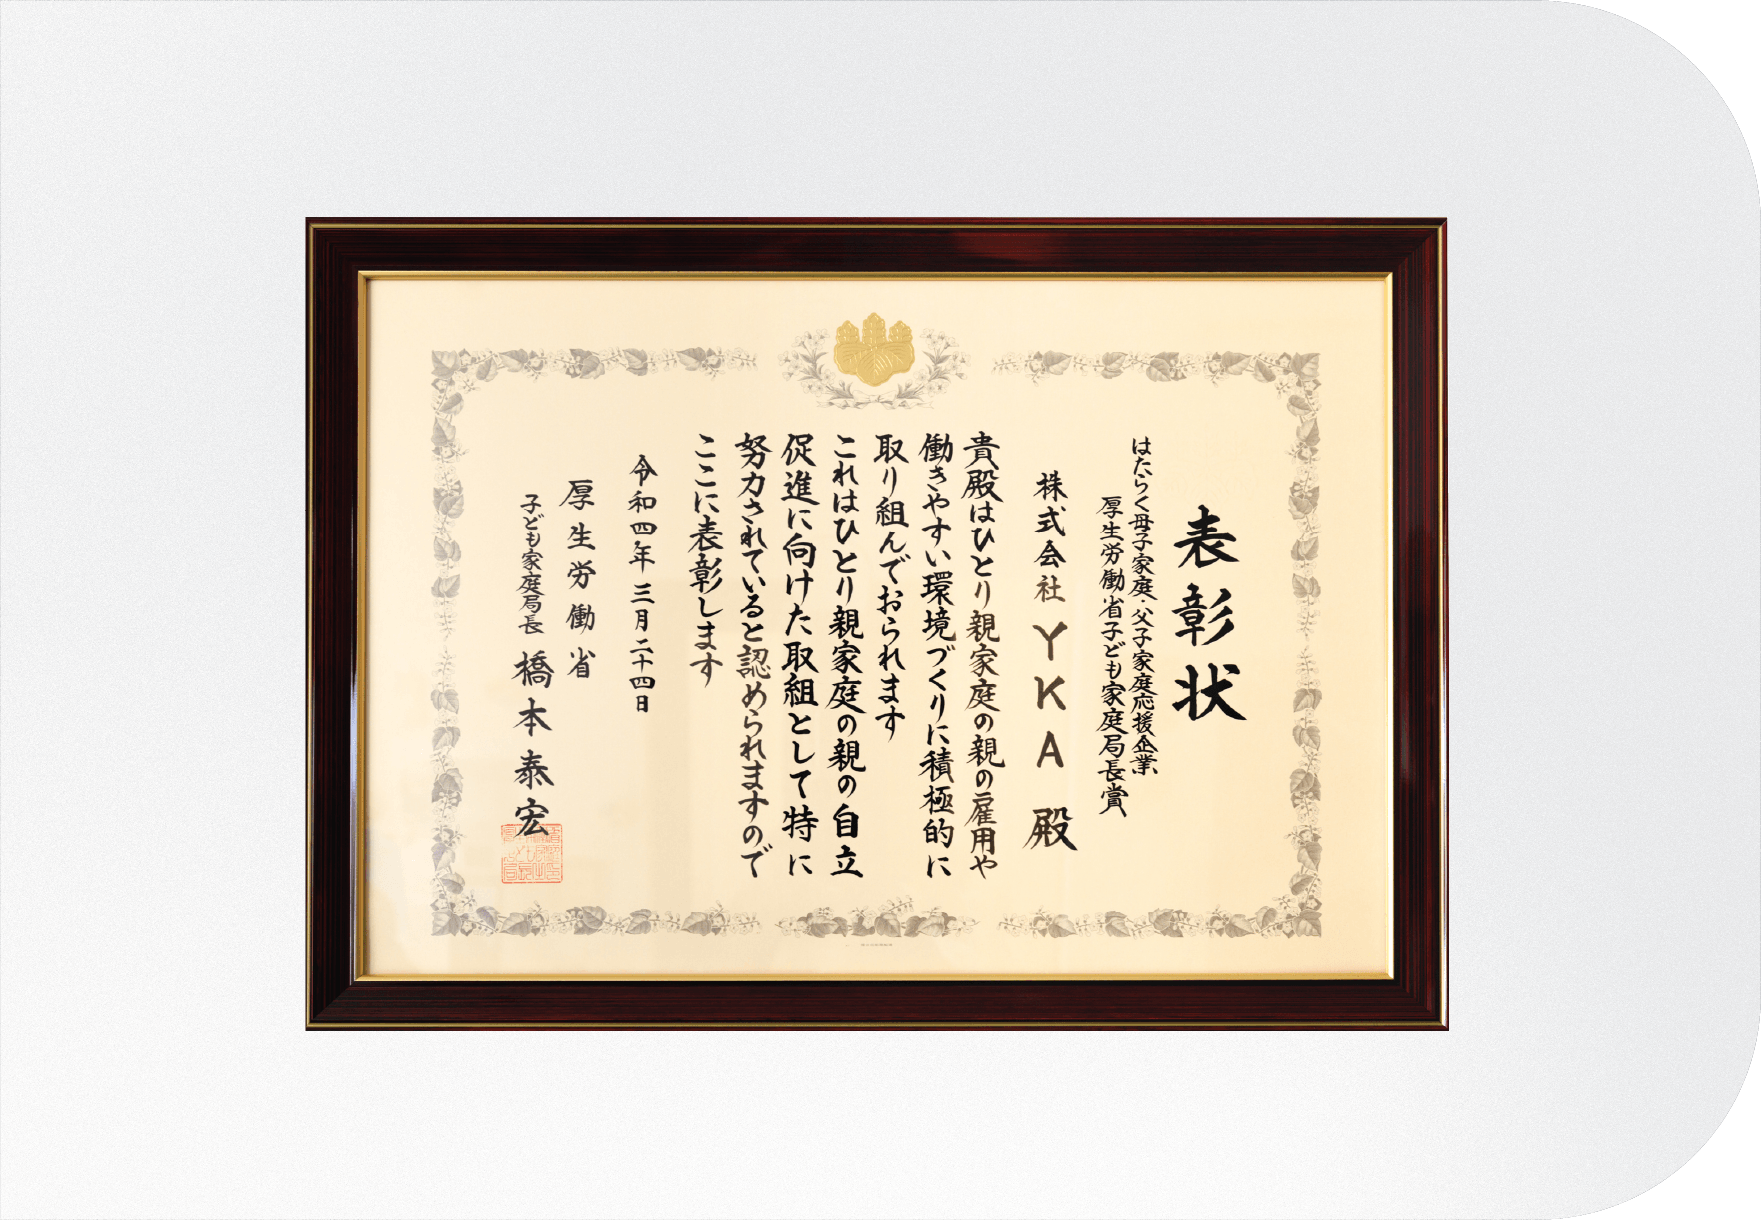 表彰状
はたらく母子家庭・父子家庭応援企業
厚生労働省子ども家庭局長賞
株式会社YKA殿
貴殿はひとり親家庭の親の雇用や
働きやすい環境づくりに積極的に
取り組んでおられます
これはひとり親家庭の親の自立
促進に向けた取組として特に
努力されていると認められますので
ここに表彰します
令和四年三月二十四日
厚生労働省
子ども家庭局長 橋本泰宏